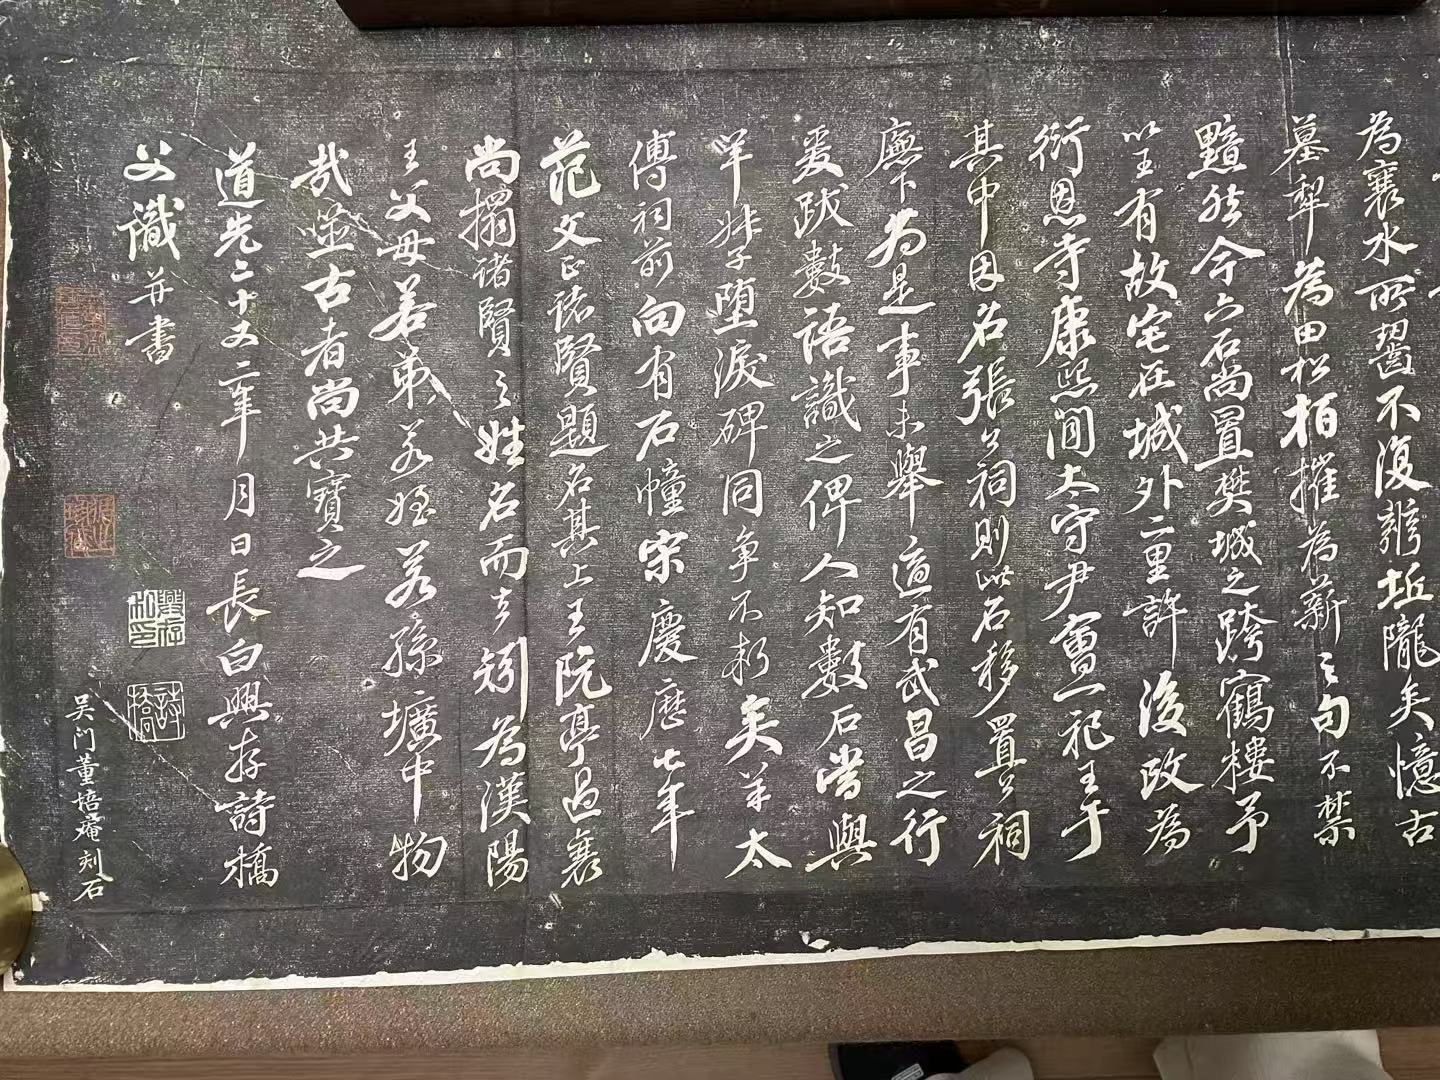 為襄水所齧不復辨坵隴矣憶古
墓犂為田松柏摧為薪之句不禁
黯然今六石尚置樊城之跨鶴樓予
以王有故宅在城外二里許後改為
衍恩寺康熙間太守尹會一祀王于
其中因名張公祠則此石移置公祠
廡下為是事未舉適有武昌之行
爰跋數語識之俾人知數石當與
羊妹子墮淚碑同爭不朽矣羊太
傅祠前向有石幢宋慶厯七年
范文正諸賢題名其上王阮亭過襄
尚搨諸賢之姓名而去矧為漢陽
王父母若弟若姪若孫壙中物
哉並古者尚共寶之
道光二十又二年月日長白興存詩橋
父識并書
興存私印
詩橋
吳门董培菴刻石